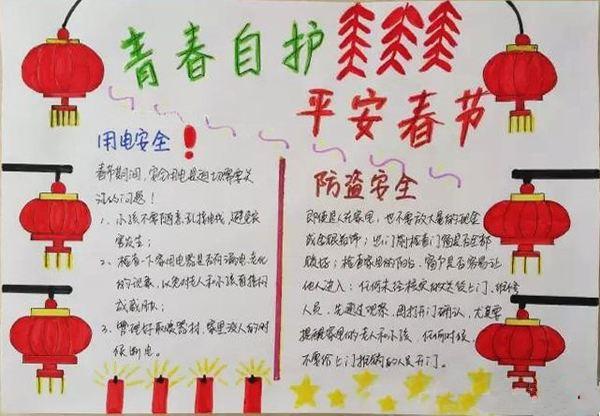 青春自护
平安春节
用电安全！
春节期间，安全用电是迫切需要关
注的问题！
1、小孩不要随意乱接电线，避免灾
害发生；
2、检查一下家用电器是否有漏电、老化
的现象，以免对老人和小孩直接构
成威胁；
3、管理好取暖器材，家里没人的时
候断电。
防盗安全
即使是人在家里，也不要放大量的现金
或金银首饰；出门前检查门窗是否全部
检查家里的阳台、窗户是否容易让
他人进入；任何未经核实的
人员，先通过观察，再打开门确认，尤其要
提醒家里的老人和小孩，任何时候
不要给上门推销的人员开门。